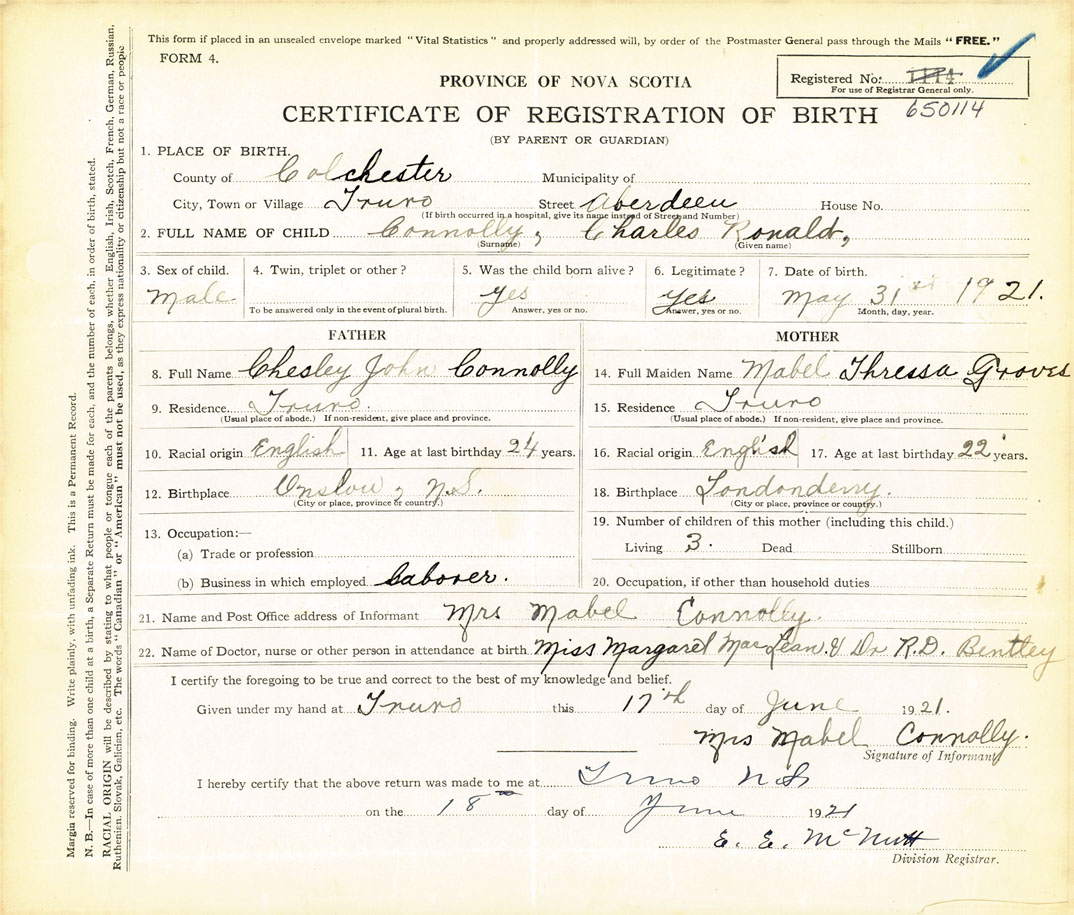 This form if placed in an unsealed envelope marked "Vital Statistics" and properly addressed will, by order of the Postmaster General pass through the Mails "FREE."
FORM 4.
PROVINCE OF NOVA SCOTIA
Registered No. 1114
For use of Registrar General only.
650114
CERTIFICATE OF REGISTRATION OF BIRTH
(BY PARENT OR GUARDIAN)
1. PLACE OF BIRTH.
County of Colchester Municipality of
City, Town or Village Truro Street Aberdeen House No.
(If birth occurred in a hospital, give its name instead of Street and Number)
2. FULL NAME OF CHILD Connolly, Charles Ronald,
(Surname) (Given name)
3. Sex of child. 4. Twin, triplet or other? 5. Was the child born alive? 6. Legitimate? 7. Date of birth.
Male yes yes May 31st 1921.
To be answered only in the event of plural birth. Answer, yes or no. Answer, yes or no. Month, day, year.
FATHER
8. Full Name Chesley John Connolly
9. Residence. Truro.
(Usual place of abode.) If non-resident, give place and province.
10. Racial origin English 11. Age at last birthday 24 years.
12. Birthplace Onslow, N.S.
(City or place, province or country.)
13. Occupation:—
(a) Trade or profession
(b) Business in which employed Laborer.
MOTHER
14. Full Maiden Name Mabel Thressa Groves
15. Residence Truro
(Usual place of abode.) If non-resident, give place and province.
16. Racial origin English 17. Age at last birthday 22 years.
18. Birthplace Londonderry.
(City or place, province or country.)
19. Number of children of this mother (including this child.)
Living 3. Dead Stillborn
20. Occupation, if other than household duties
21. Name and Post Office address of Informant Mrs Mabel Connolly.
22. Name of Doctor, nurse or other person in attendance at birth. Miss Margaret MacLean & Dr R.D. Bentley
I certify the foregoing to be true and correct to the best of my knowledge and belief.
Given under my hand at Truro this 17th day of June 1921.
Mrs Mabel Connolly.
Signature of Informant
I hereby certify that the above return was made to me at Truro N.S
on the 18 day of June 1921
E. E. McNutt
Division Registrar.
Margin reserved for binding. Write plainly, with unfading ink. This is a Permanent Record.
N. B.—In case of more than one child at a birth, a Separate Return must be made for each, and the number of each, in order of birth, stated.
RACIAL ORIGIN will be described by stating to what people or tongue each of the parents belongs, whether English, Irish, Scotch, French, German, Russian,
Ruthenian, Slovak, Galician, etc. The words "Canadian" or "American" must not be used, as they express nationality or citizenship but not a race or people